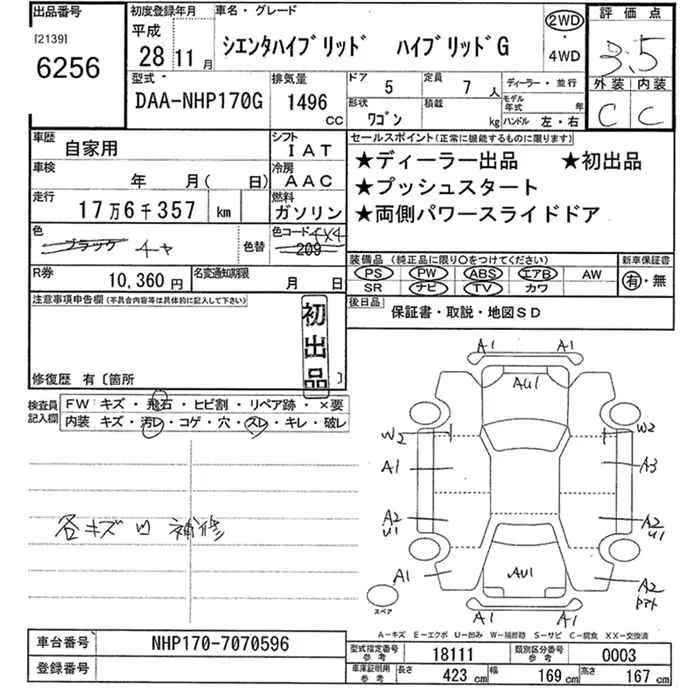 出品番号 初度登録年月 車名・グレード 2WD 評価点
[2139] 平成 ・ 3.5
6256 28 11月 シエンタハイブリッド ハイブリッドG 4WD
型式 排気量 ドア 定員 ディーラー・並行 外装 内装
DAA-NHP170G 1496 CC 5 7人 モデル年式 年 C C
形状 積載
ワゴン kg ハンドル 左・右
車歴 自家用 シフト IAT セールスポイント(正常に機能するものに限ります)
車検 年 月( 日) 冷房 AAC ★ディーラー出品 ★初出品
走行 17万6千357 km 燃料 ガソリン ★プッシュスタート
★両側パワースライドドア
色 ブラック チャ 色替 色コード 4X4 209
装備品(純正品に限り○をつけてください) 新車保証書
PS PW ABS エアB AW 有・無
R券 10,360円 名変通知期限 月 日 SR ナビ TV カワ
注意事項申告欄(不具合内容等は具体的に記入して下さい) 後日品 保証書・取説・地図SD
初出品
修復歴 有〔箇所 〕
検査員記入欄 FW キズ・飛石・ヒビ割・リペア跡・×要
内装 キズ・汚レ・コゲ・穴・スレ・キレ・破レ
A1 A1
AU1
W2 W2
A1 A3
各キズ凹 補修
A2 U1 A2 U1
A1 AU1 A2
スペア A1 A1
A-キズ E-エクボ U-凹み W-補修跡 S-サビ C-腐食 XX-交換済
車台番号 NHP170-7070596 型式指定番号 参考 18111 類別区分番号 参考 0003
登録番号 車庫証明用 参考 長さ 423 cm 幅 169 cm 高さ 167 cm